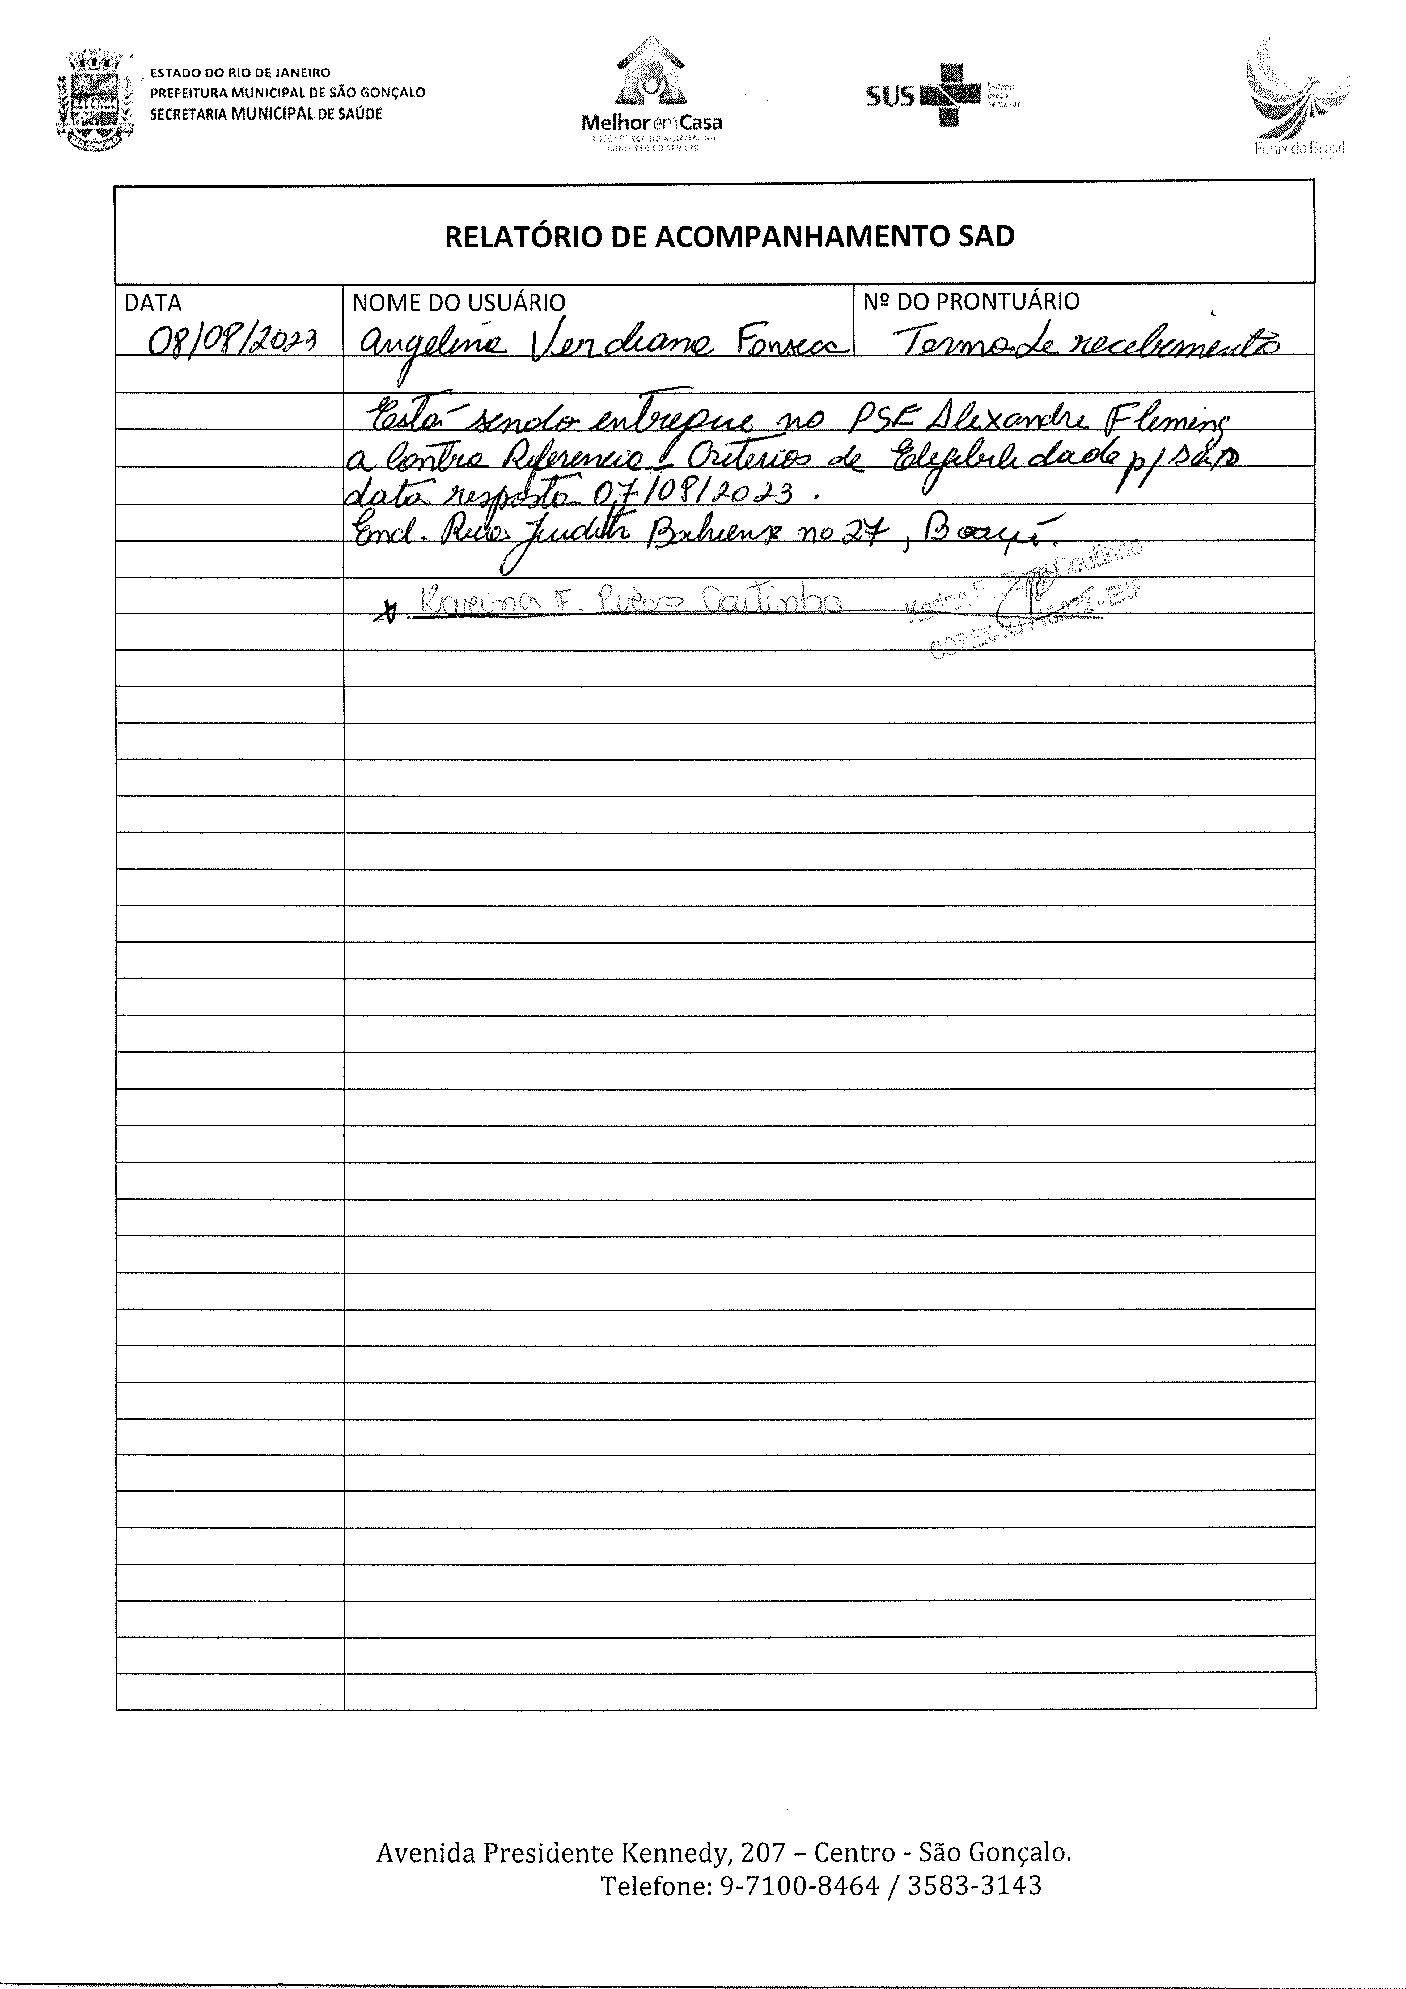 ESTADO DO RIO DE JANEIRO
PREFEITURA MUNICIPAL DE SÃO GONÇALO
SECRETARIA MUNICIPAL DE SAÚDE
Melhor em Casa
SUS
RELATÓRIO DE ACOMPANHAMENTO SAD
DATA NOME DO USUÁRIO Nº DO PRONTUÁRIO
08/08/2023 Angelina Verdiana Fonseca Termo de recebimento
Está sendo entregue no PSF Alexandre Fleming
a Contra Referencia Criterios de Elegibilidade p/ SAD
data resposta 07/08/2023.
End. Rua Judith Bahiense no 27, Boaçú.
Avenida Presidente Kennedy, 207 – Centro - São Gonçalo.
Telefone: 9-7100-8464 / 3583-3143